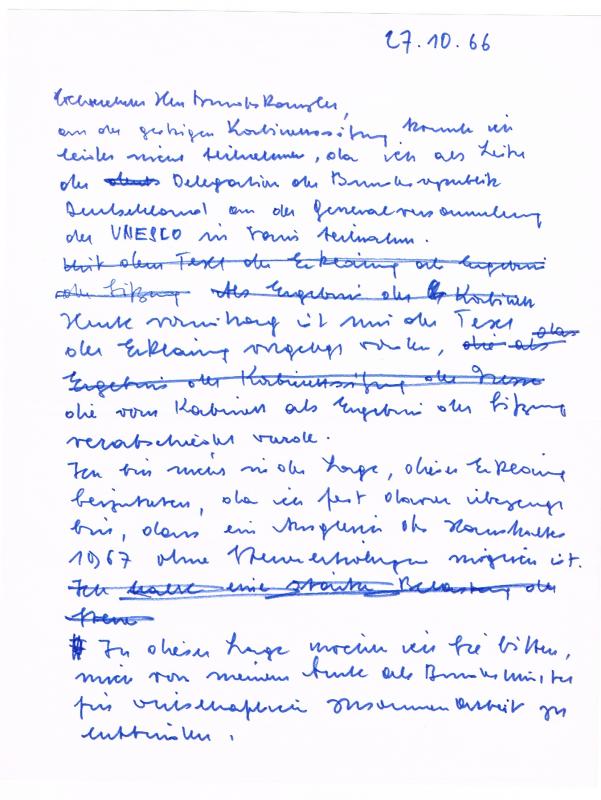 27.10.66
Sehr verehrter Herr Bundeskanzler,
an der gestrigen Kabinettssitzung konnte ich
leider nicht teilnehmen, da ich als Leiter
der Delegation der Bundesrepublik
Deutschland an der Generalversammlung
der UNESCO in Paris teilnahm.
Mit dem Text der Erklärung als Ergebnis
der Sitzung Als Ergebnis der Kabinett
Heute vormittag ist mir der Text das
der Erklärung vorgelegt worden, die als
Ergebnis der Kabinettssitzung der Presse
die vom Kabinett als Ergebnis der Sitzung
verabschiedet wurde.
Ich bin nicht in der Lage, dieser Erklärung
beizutreten, da ich fest davon überzeugt
bin, dass ein Ausgleich des Haushaltes
1967 ohne Steuererhöhungen möglich ist.
Ich halte eine stärkere Belastung der
Steuer
In dieser Lage möchte ich Sie bitten,
mich von meinem Amte als Bundesminister
für wissenschaftliche Zusammenarbeit zu
entbinden.